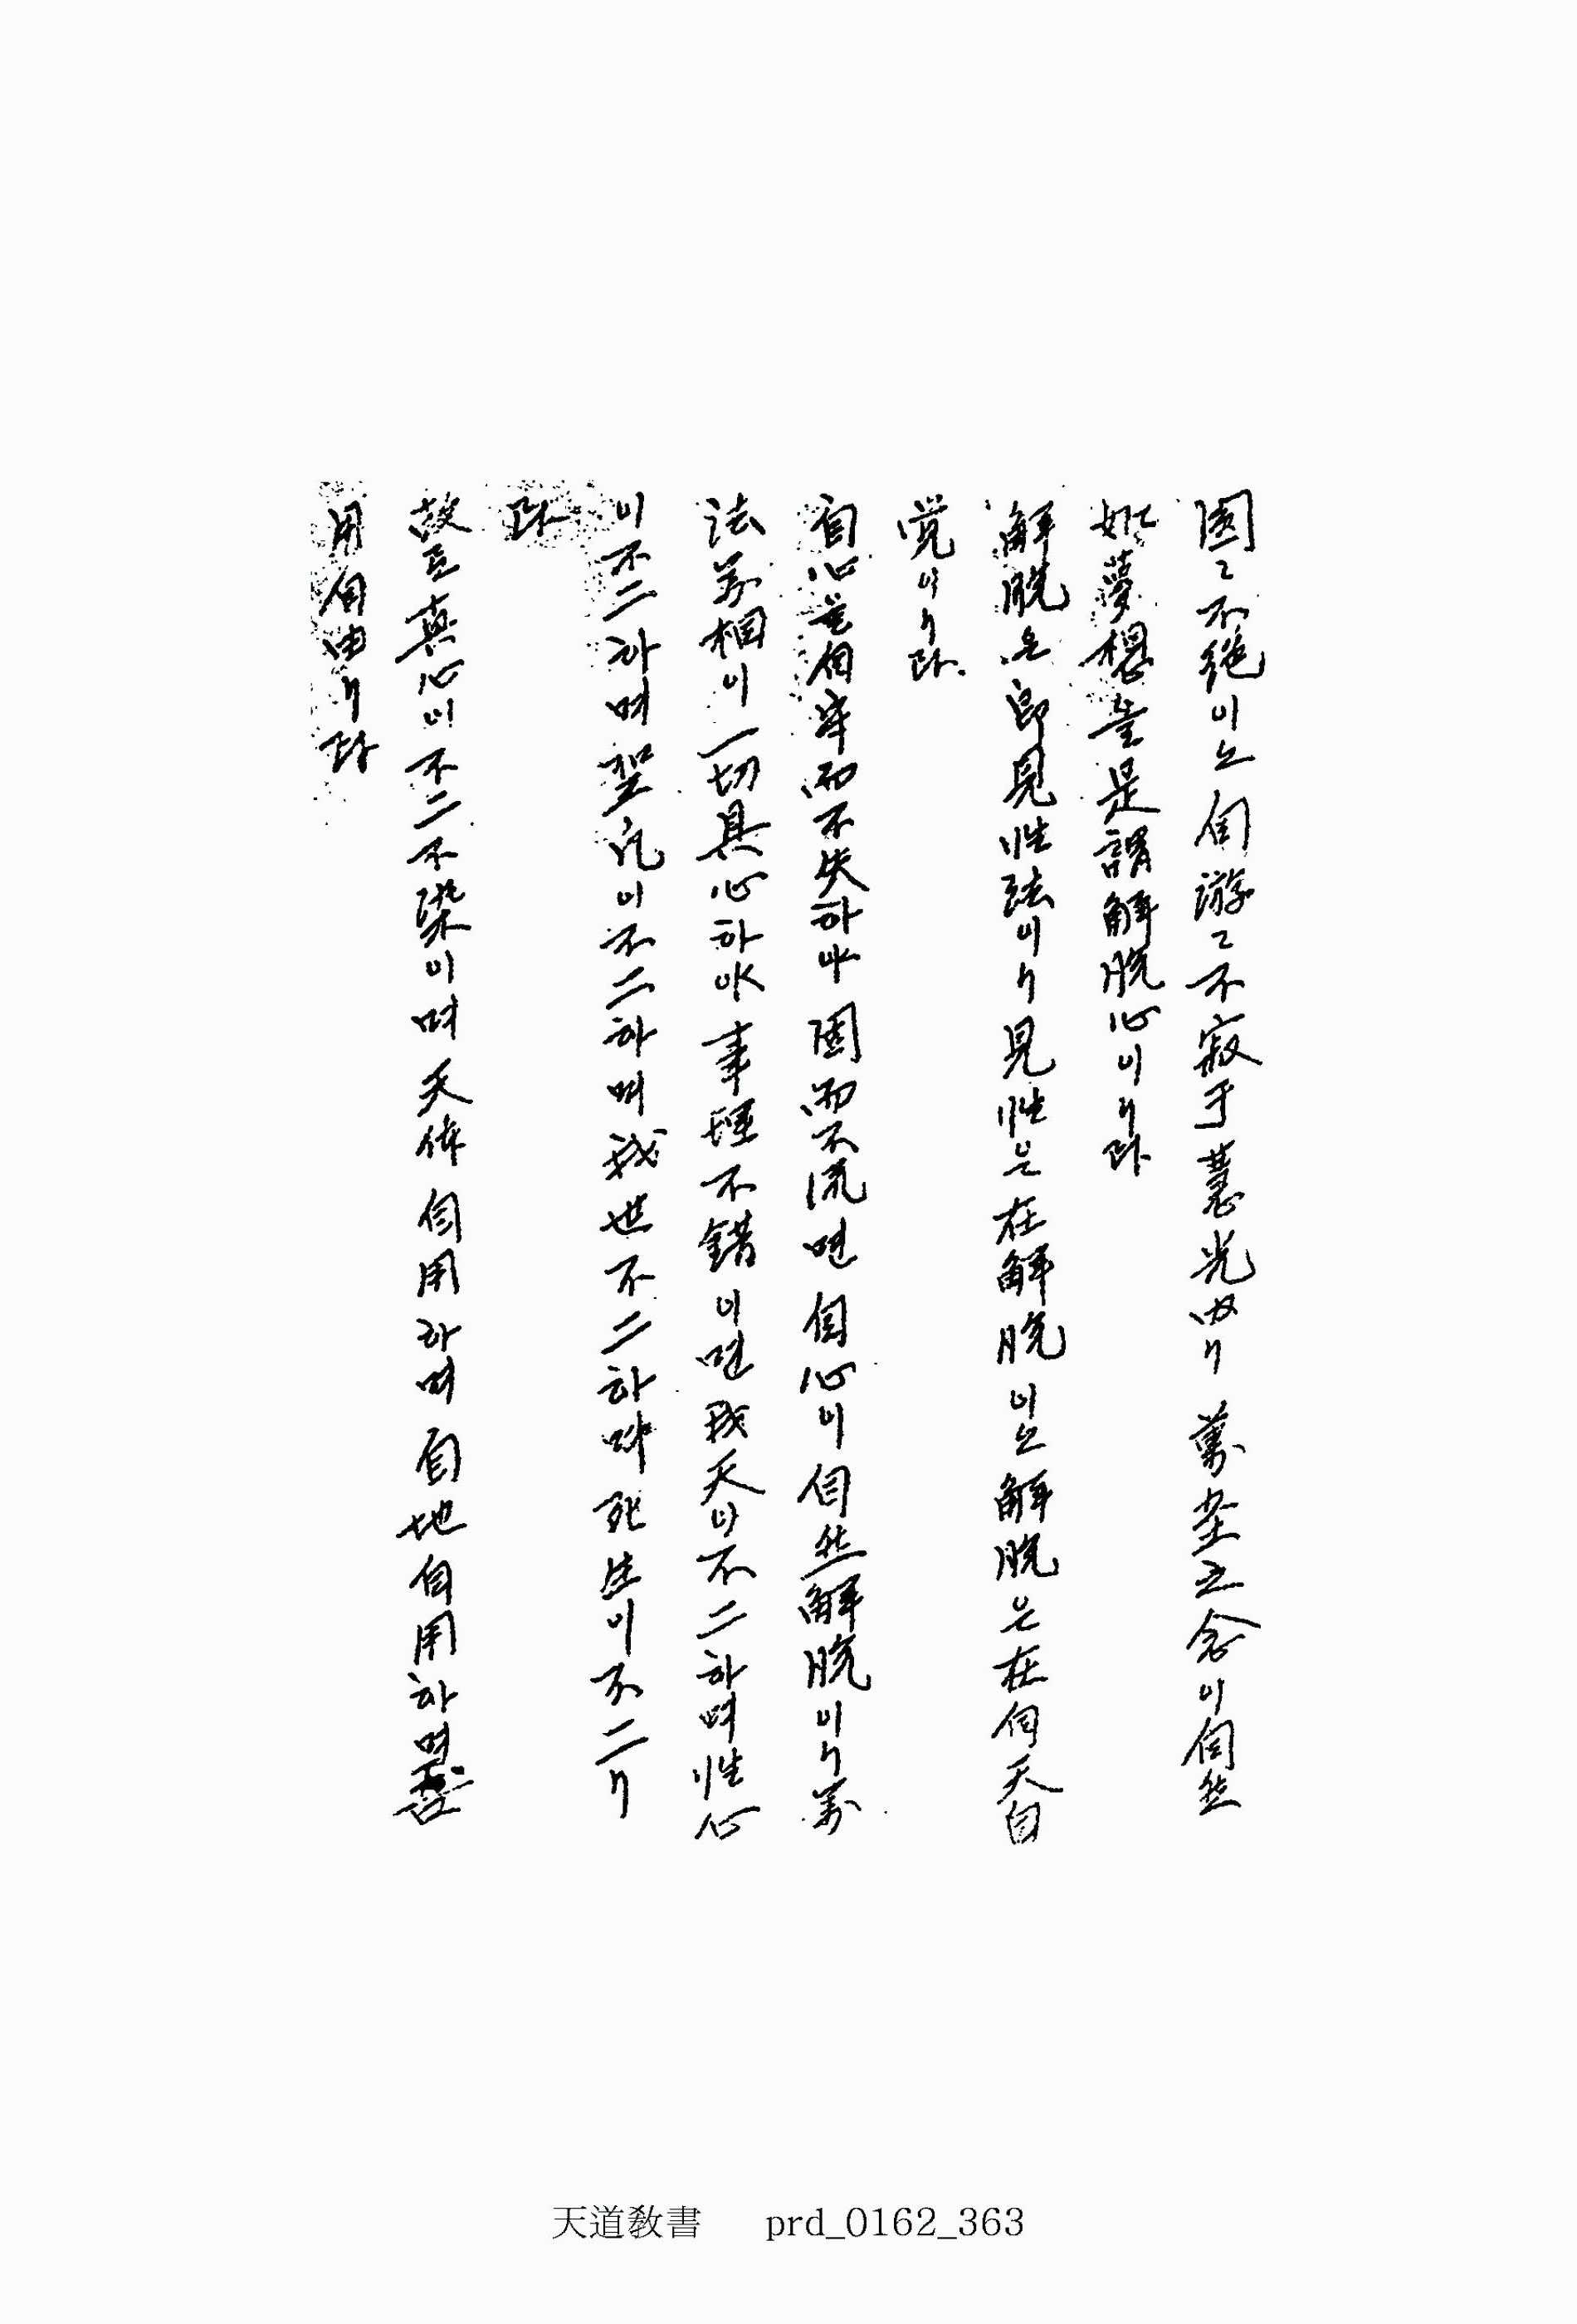 圓〻不絶이오 自游〻不寂于慧光內리 萬塵之念이 自然
如夢想을 是謂解脫心이리라
解脫은 卽見性法이니 見性은 在解脫이오 解脫은 在自天自
覚이니라.
自心을 自守而不失하며 固而不流면 自心이 自然解脫이니 萬
法萬相이 一切具心하야 事理不錯이면 我天이 不二하며 性心
이 不二하며 聖凡이 不二하며 我世不二하며 死生이 不二니
라
故로 真心이 不二不染이며 天体自用하며 自地自用하며
用自由니라
天道敎書 prd_0162_363